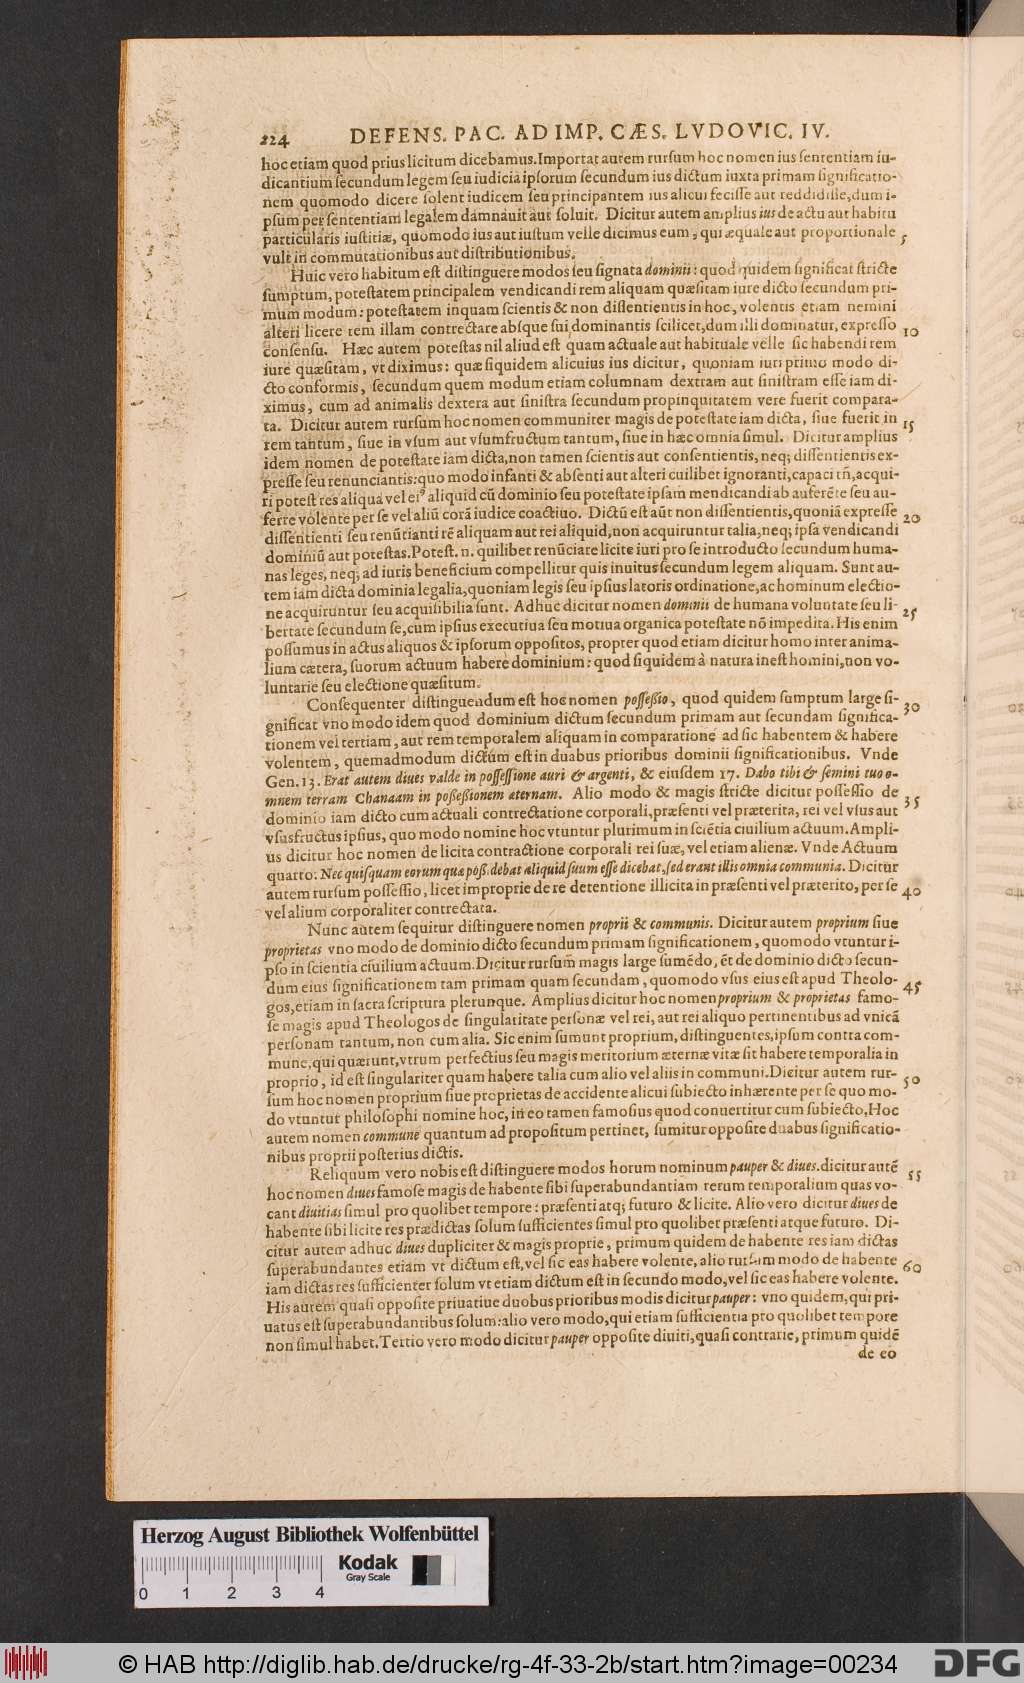 224 DEFENS. PAC. AD IMP. CÆS. LVDOVIC. IV.
hoc etiam quod prius licitum dicebamus. Importat autem rursum hoc nomen ius sententiam iu-
dicantium secundum legem seu iudicia ipsorum secundum ius dictum iuxta primam significatio-
nem quomodo dicere solent iudicem seu principantem ius alicui fecisse aut reddidisse, dum i-
psum per sententiam legalem damnauit aut soluit. Dicitur autem amplius ius de actu aut habitu
particularis iustitiæ, quomodo ius aut iustum velle dicimus eum, qui æquale aut proportionale 5
vult in commutationibus aut distributionibus.
Huic vero habitum est distinguere modos seu signata dominii: quod quidem significat stricte
sumptum, potestatem principalem vendicandi rem aliquam quæsitam iure dicto secundum pri-
mum modum: potestatem inquam scientis & non dissentientis in hoc, volentis etiam nemini
alteri licere rem illam contrectare absque sui dominantis scilicet, dum illi dominatur, expresso 10
consensu. Hæc autem potestas nil aliud est quam actuale aut habituale velle sic habendi rem
iure quæsitam, vt diximus: quæ siquidem alicuius ius dicitur, quoniam iuri primo modo di-
cto conformis, secundum quem modum etiam columnam dextram aut sinistram esse iam di-
ximus, cum ad animalis dextera aut sinistra secundum propinquitatem vere fuerit compara-
ta. Dicitur autem rursum hoc nomen communiter magis de potestate iam dicta, siue fuerit in 15
rem tantum, siue in vsum aut vsumfructum tantum, siue in hæc omnia simul. Dicitur amplius
idem nomen de potestate iam dicta, non tamen scientis aut consentientis, neq; dissentientis ex-
presse seu renunciantis: quo modo infanti & absenti aut alteri cuilibet ignoranti, capaci tñ, acqui-
ri potest res aliqua vel ei⁹ aliquid cũ dominio seu potestate ipsam mendicandi ab auferẽte seu au-
ferre volente per se vel aliũ corã iudice coactiuo. Dictũ est aũt non dissentientis, quoniã expresse 20
dissentienti seu renũtianti rẽ aliquam aut rei aliquid, non acquiruntur talia, neq; ipsa vendicandi
dominiũ aut potestas. Potest. n. quilibet renũciare licite iuri pro se introducto secundum huma-
nas leges, neq; ad iuris beneficium compellitur quis inuitus secundum legem aliquam. Sunt au-
tem iam dicta dominia legalia, quoniam legis seu ipsius latoris ordinatione, ac hominum electio-
ne acquiruntur seu acquisibilia sunt. Adhuc dicitur nomen dominii de humana voluntate seu li- 25
bertate secundum se, cum ipsius executiua seu motiua organica potestate nõ impedita. His enim
possumus in actus aliquos & ipsorum oppositos, propter quod etiam dicitur homo inter anima-
lium cætera, suorum actuum habere dominium: quod siquidem à natura inest homini, non vo-
luntarie seu electione quæsitum.
Consequenter distinguendum est hoc nomen possessio, quod quidem sumptum large si- 30
gnificat vno modo idem quod dominium dictum secundum primam aut secundam significa-
tionem vel tertiam, aut rem temporalem aliquam in comparatione ad sic habentem & habere
volentem, quemadmodum dictum est in duabus prioribus dominii significationibus. Vnde
Gen. 13. Erat autem diues valde in possessione auri & argenti, & eiusdem 17. Dabo tibi & semini tuo o-
mnem terram Chanaam in possessionem æternam. Alio modo & magis stricte dicitur possessio de 35
dominio iam dicto cum actuali contrectatione corporali, præsenti vel præterita, rei vel vsus aut
vsusfructus ipsius, quo modo nomine hoc vtuntur plurimum in sciẽtia ciuilium actuum. Ampli-
us dicitur hoc nomen de licita contractione corporali rei suæ, vel etiam alienæ. Vnde Actuum
quarto: Nec quisquam eorum quæ poss. debat aliquid suum esse dicebat, sed erant illis omnia communia. Dicitur
autem rursum possessio, licet improprie de re detentione illicita in præsenti vel præterito, per se 40
vel alium corporaliter contrectata.
Nunc autem sequitur distinguere nomen proprii & communis. Dicitur autem proprium siue
proprietas vno modo de dominio dicto secundum primam significationem, quomodo vtuntur i-
pso in scientia ciuilium actuum. Dicitur rursum magis large sumẽdo, ẽt de dominio dicto secun-
dum eius significationem tam primam quam secundam, quomodo vsus eius est apud Theolo- 45
gos, etiam in sacra scriptura plerunque. Amplius dicitur hoc nomen proprium & proprietas famo-
se magis apud Theologos de singularitate personæ vel rei, aut rei aliquo pertinentibus ad vnicã
personam tantum, non cum alia. Sic enim sumunt proprium, distinguentes, ipsum contra com-
mune, qui quærunt, vtrum perfectius seu magis meritorium æternæ vitæ sit habere temporalia in
proprio, id est singulariter quam habere talia cum alio vel aliis in communi. Dicitur autem rur- 50
sum hoc nomen proprium siue proprietas de accidente alicui subiecto inhærente per se quo mo-
do vtuntur philosophi nomine hoc, in eo tamen famosius quod conuertitur cum subiecto, Hoc
autem nomen commune quantum ad propositum pertinet, sumitur opposite duabus significatio-
nibus proprii posterius dictis.
Reliquum vero nobis est distinguere modos horum nominum pauper & diues. dicitur autẽ 55
hoc nomen diues famose magis de habente sibi superabundantiam rerum temporalium quas vo-
cant diuitias simul pro quolibet tempore: præsenti atq; futuro & licite. Alio vero dicitur diues de
habente sibi licite res prædictas solum sufficientes simul pro quolibet præsenti atque futuro. Di-
citur autem adhuc diues dupliciter & magis proprie, primum quidem de habente res iam dictas
superabundantes etiam vt dictum est, vel sic eas habere volente, alio rursum modo de habente 60
iam dictas res sufficienter solum vt etiam dictum est in secundo modo, vel sic eas habere volente.
His autem quasi opposite priuatiue duobus prioribus modis dicitur pauper: vno quidem, qui pri-
uatus est superabundantibus solum: alio vero modo, qui etiam sufficientia pro quolibet tempore
non simul habet. Tertio vero modo dicitur pauper opposite diuiti, quasi contrarie, primum quidẽ
de eo
Herzog August Bibliothek Wolfenbüttel
Kodak
Gray Scale
0 1 2 3 4
© HAB http://diglib.hab.de/drucke/rg-4f-33-2b/start.htm?image=00234
DFG